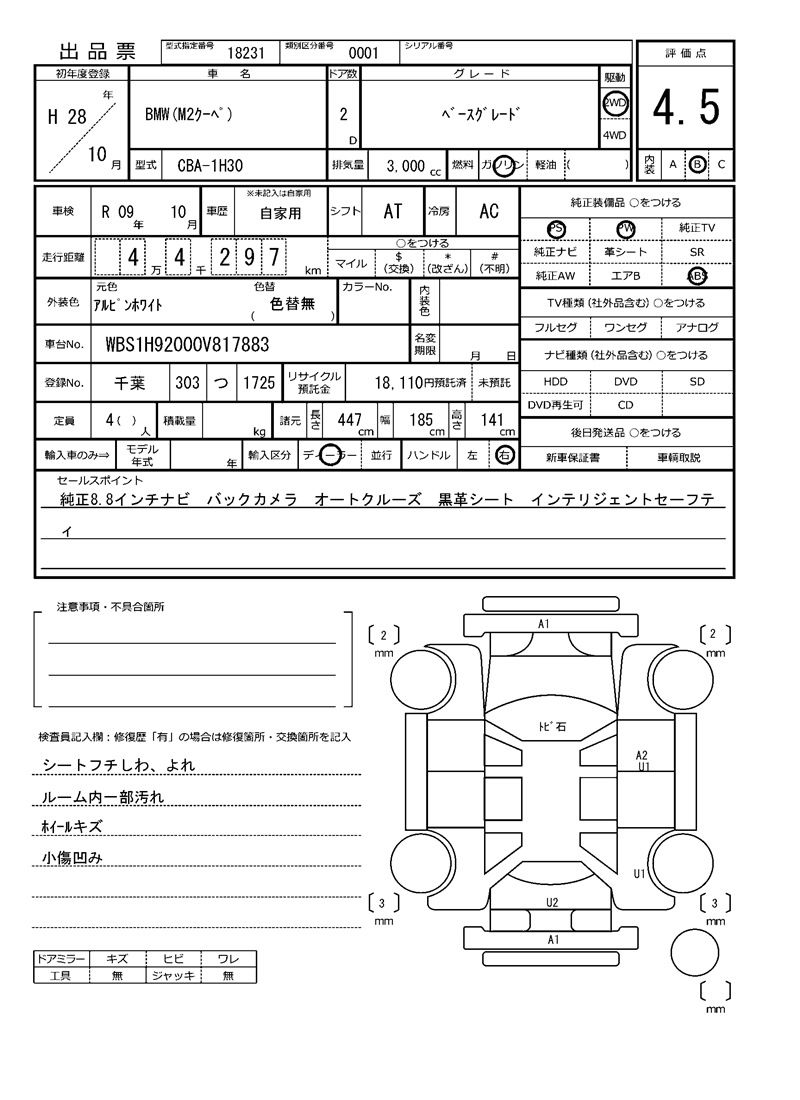 出品票 型式指定番号 18231 類別区分番号 0001 シリアル番号
評価点
初年度登録 車名 ドア数 グレード 駆動
H 28 年 10 月 BMW(M2ｸｰﾍﾟ) 2 D ﾍﾞｰｽｸﾞﾚｰﾄﾞ 2WD 4WD
4.5
型式 CBA-1H30 排気量 3,000 cc 燃料 ガソリン 軽油 ( )
内装 A B C
車検 R 09 年 10 月 車歴 ※未記入は自家用 自家用 シフト AT 冷房 AC
純正装備品 ○をつける
PS PW 純正TV
走行距離 4 万 4 千 2 9 7 km ○をつける
マイル $(交換) *(改ざん) #(不明)
純正ナビ 革シート SR
純正AW エアB ABS
外装色 元色 ｱﾙﾋﾟﾝﾎﾜｲﾄ 色替 ( 色替無 ) カラーNo. 内装色
TV種類(社外品含む)○をつける
フルセグ ワンセグ アナログ
車台No. WBS1H92000V817883 名変期限 月 日
ナビ種類(社外品含む)○をつける
登録No. 千葉 303 つ 1725 リサイクル預託金 18,110円預託済 未預託
HDD DVD SD
DVD再生可 CD
定員 4( ) 人 積載量 kg 諸元 長さ 447 cm 幅 185 cm 高さ 141 cm
後日発送品 ○をつける
輸入車のみ⇒ モデル年式 年 輸入区分 ディーラー 並行 ハンドル 左 右
新車保証書 車輌取説
セールスポイント
純正8.8インチナビ バックカメラ オートクルーズ 黒革シート インテリジェントセーフテ
ィ
注意事項・不具合箇所
検査員記入欄：修復歴「有」の場合は修復箇所・交換箇所を記入
シートフチしわ、よれ
ルーム内一部汚れ
ﾎｲｰﾙキズ
小傷凹み
ドアミラー キズ ヒビ ワレ
工具 無 ジャッキ 無
A1
2 mm
2 mm
ﾄﾋﾞ石
A2
U1
U1
3 mm
U2
3 mm
A1
mm